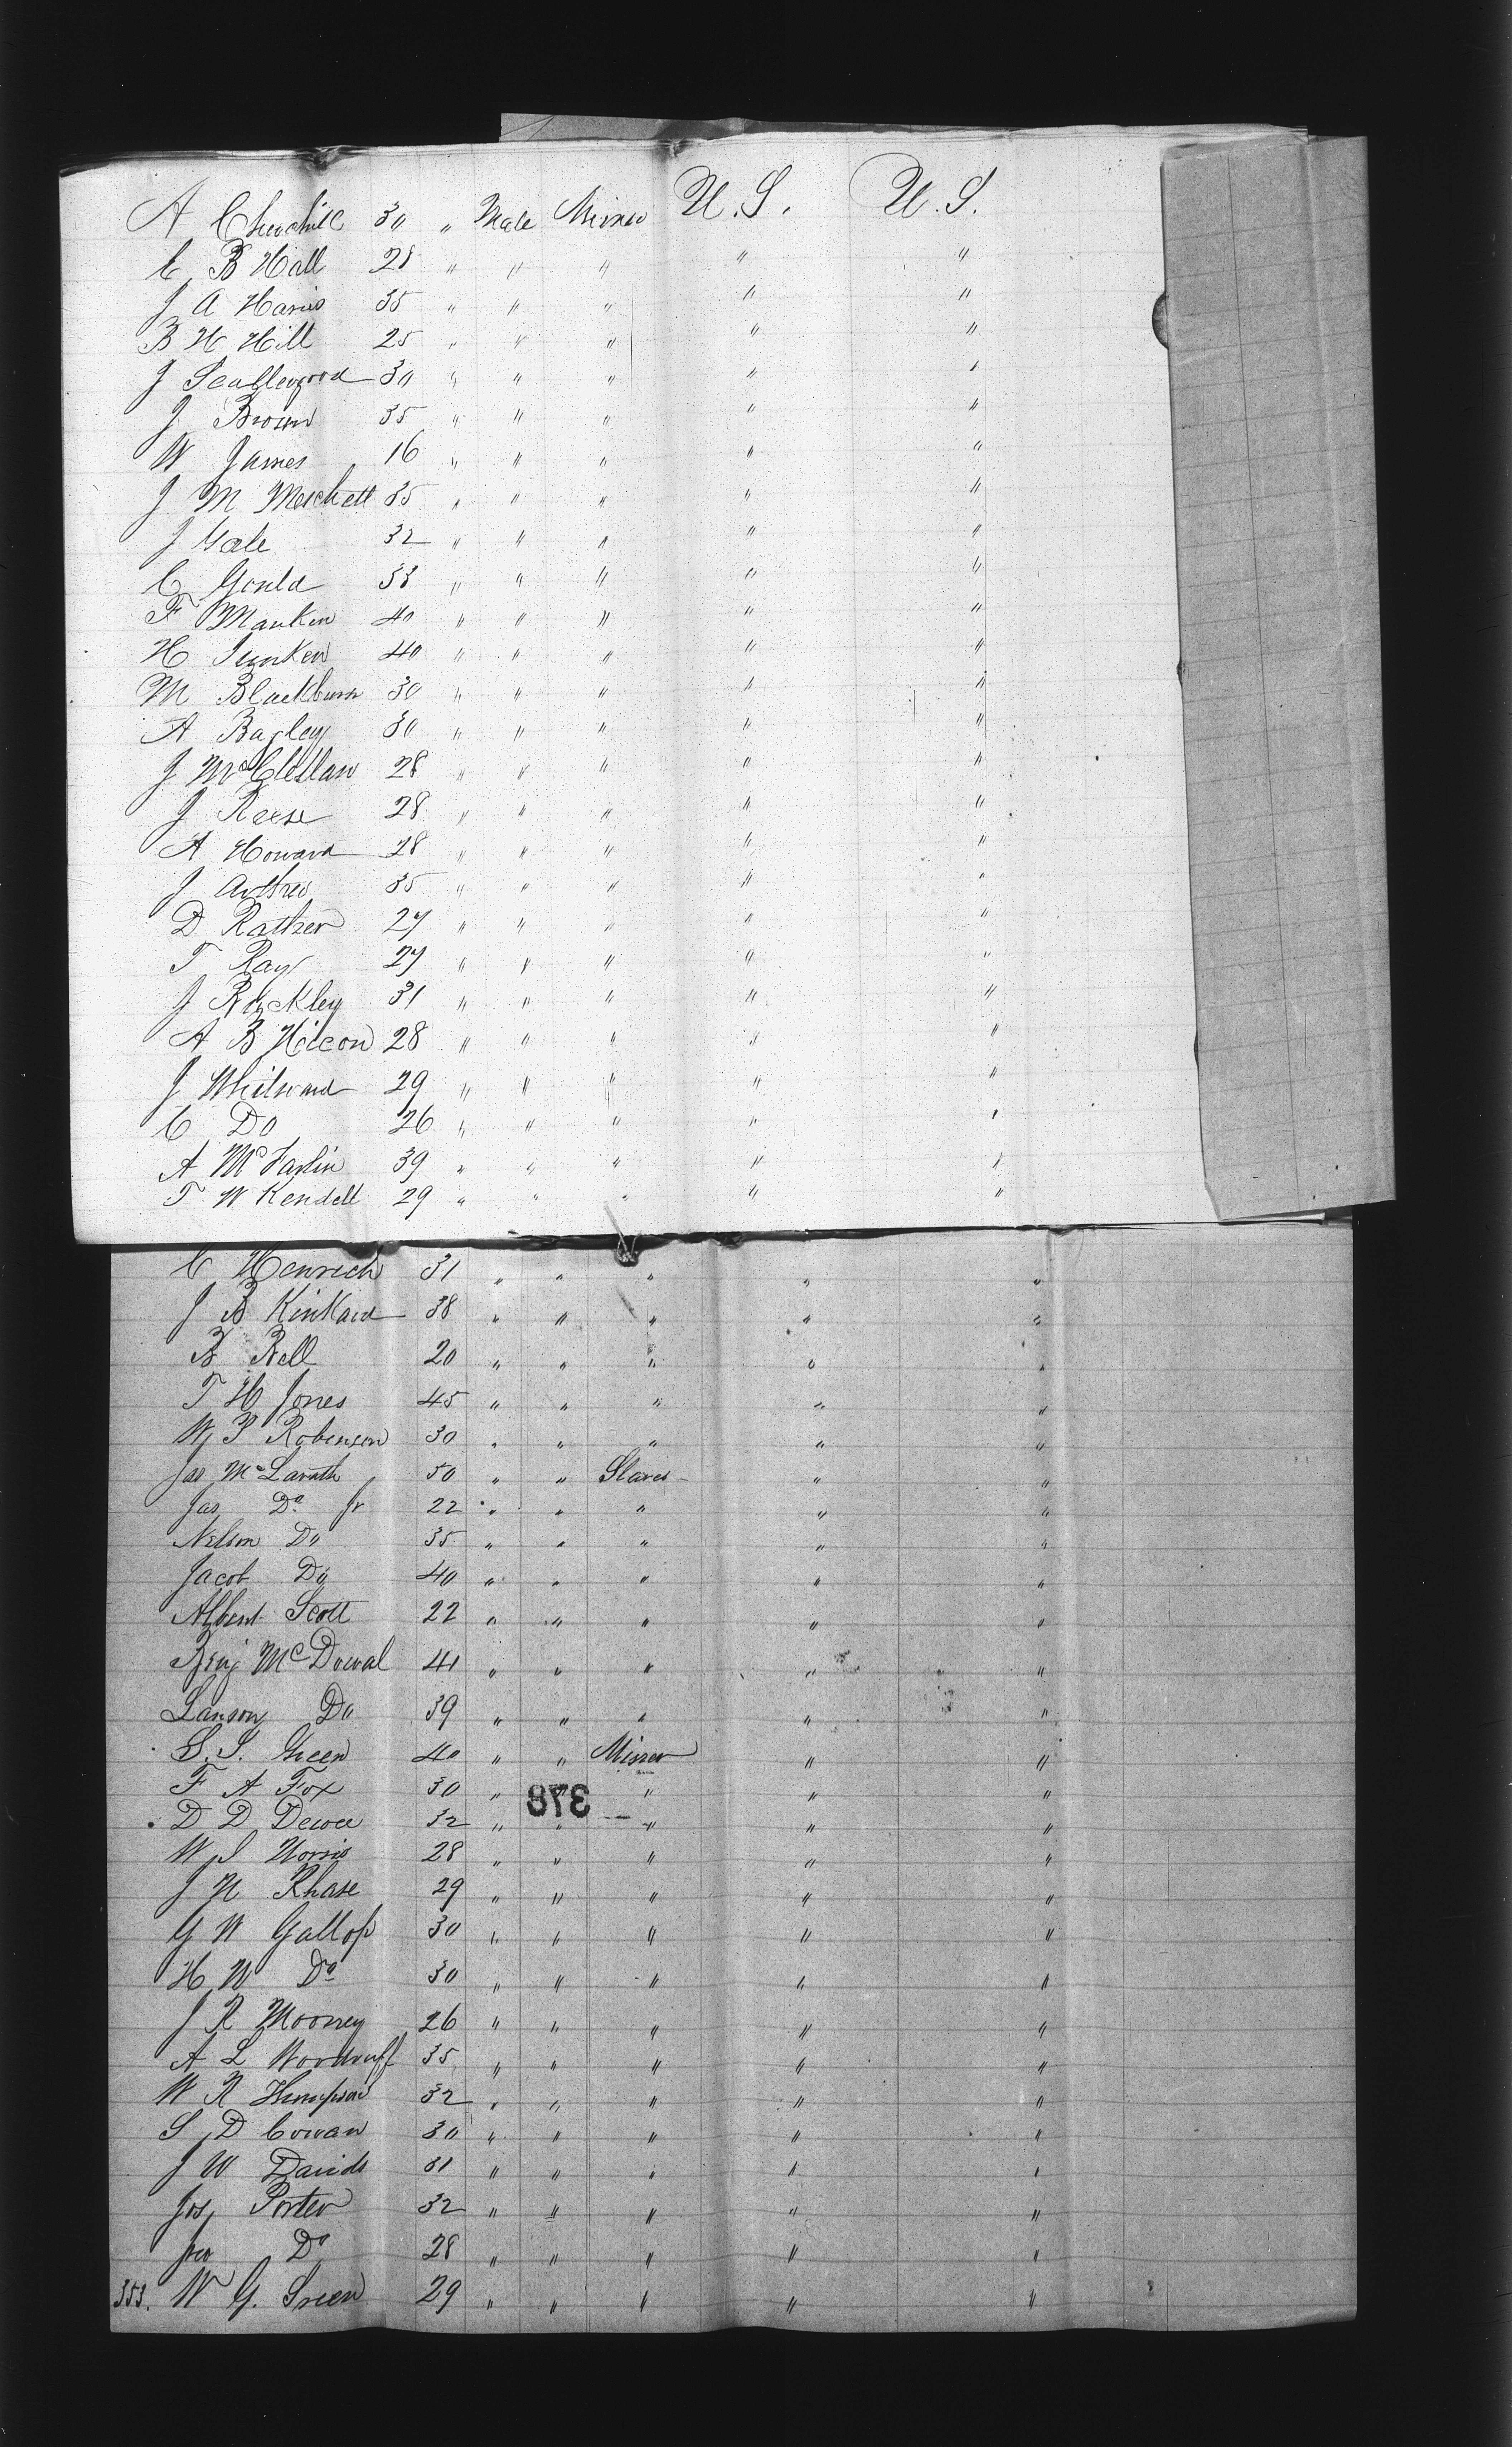 A Churchill 30 " Male Miner U.S. U.S.
C B Hall 28 " " " " "
J A Harris 35 " " " " "
B H Hill 25 " " " " "
J Scattergood 30 " " " " "
J Brown 35 " " " " "
W James 16 " " " " "
J M Meschett 35 " " " " "
J Gale 32 " " " " "
C Gould 33 " " " " "
F Mankin 40 " " " " "
H Junken 40 " " " " "
M Blackburn 30 " " " " "
A Bagley 30 " " " " "
J McClellan 28 " " " " "
J Reese 28 " " " " "
A Howard 28 " " " " "
J Arthur 35 " " " " "
D Rather 27 " " " " "
T Ray 27 " " " " "
J Rockley 31 " " " " "
A B Hixcon 28 " " " " "
J Whitward 29 " " " " "
C Do 26 " " " " "
A McFarlin 39 " " " " "
T W Kendell 29 " " " " "
C Henrich 31 " " " " "
J B Kinkaid 38 " " " " "
B Bell 20 " " " " "
T H Jones 45 " " " " "
W P Robinson 30 " " " " "
Jas McLarath 50 " " Slaves " "
Jas Do Jr 22 " " " " "
Nelson Do 35 " " " " "
Jacob Do 40 " " " " "
Albert Scott 22 " " " " "
Benj McDowal 41 " " " " "
Lanson Do 39 " " " " "
S. S. Green 40 " " Miner " "
F A Fox 30 " " " " "
378
D D Dewee 32 " " " " "
W S Norris 28 " " " " "
J N Rhase 29 " " " " "
G W Gallop 30 " " " " "
H W Do 30 " " " " "
J R Mooney 26 " " " " "
A L Woodruff 35 " " " " "
W R Thompson 32 " " " " "
S D Cowan 30 " " " " "
J W Davids 31 " " " " "
Jos Porter 32 " " " " "
Jno Do 28 " " " " "
353. W G. Green 29 " " " " "